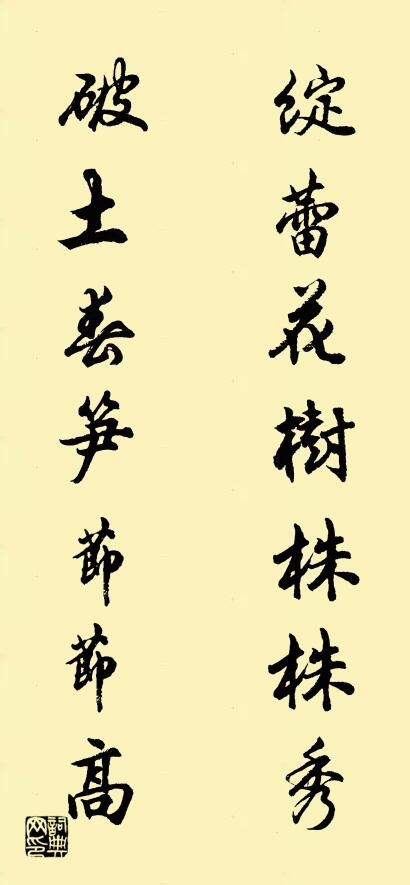 綻蕾花樹株株秀
破土春笋節節高
詞典网印